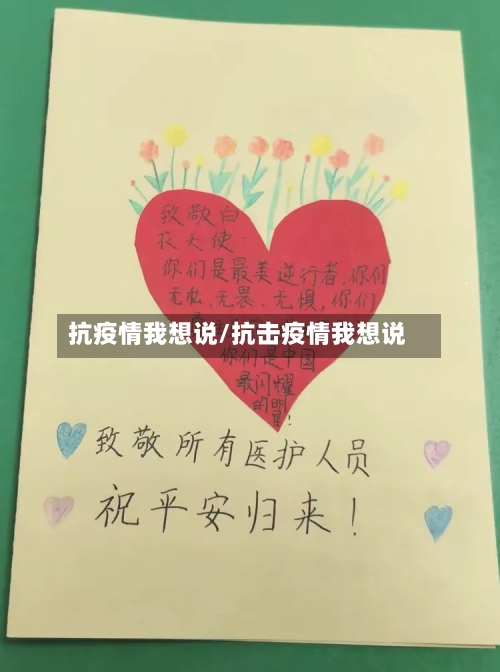 致敬白
衣天使：
你们是最美逆行者，你们
无私、无畏、无惧，你们
抗疫情我想说/抗击疫情我想说
你们是中国
最闪耀
的明
星！
致敬所有医护人员
祝平安归来！